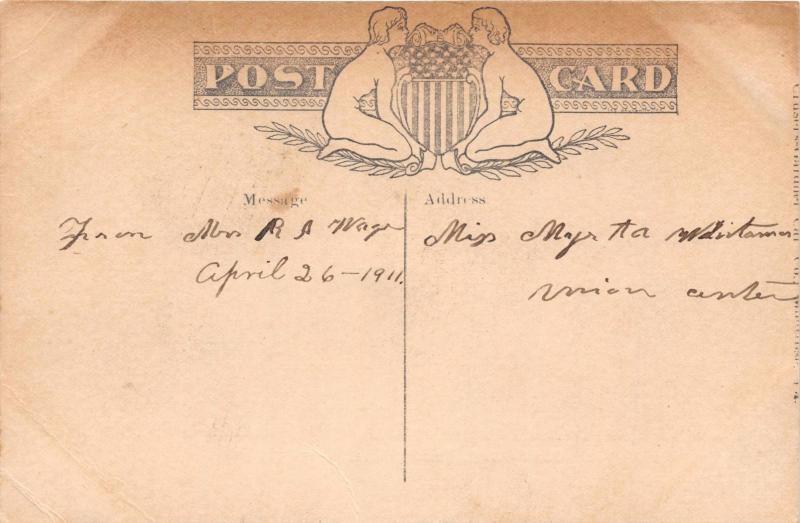 POST CARD
Message
Address
From Mrs R Wage
April 26-1911.
Miss Myrta
Union center